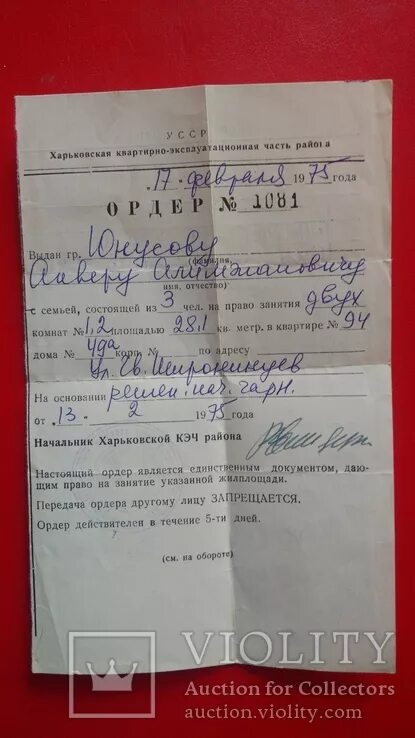 УССР
Харьковская квартирно-эксплуатационная часть района
17 февраля 1975 года
ОРДЕР № 1081
Выдан гр. Юнусову
(фамилия,
Анверу Алимжановичу
имя, отчество)
с семьей, состоящей из 3 чел. на право занятия двух
комнат № 1,2 площадью 28.1 кв. метр. в квартире № 94
дома № 49а корп. № по адресу
ул. Св. Широнинцев
На основании решен. нач. гарн.
от 13. 2 1975 года
Начальник Харьковской КЭЧ района
Настоящий ордер является единственным документом, даю-
щим право на занятие указанной жилплощади.
Передача ордера другому лицу ЗАПРЕЩАЕТСЯ.
Ордер действителен в течение 5-ти дней.
(см. на обороте)
VIOLITY
Auction for Collectors
auction.violity.com